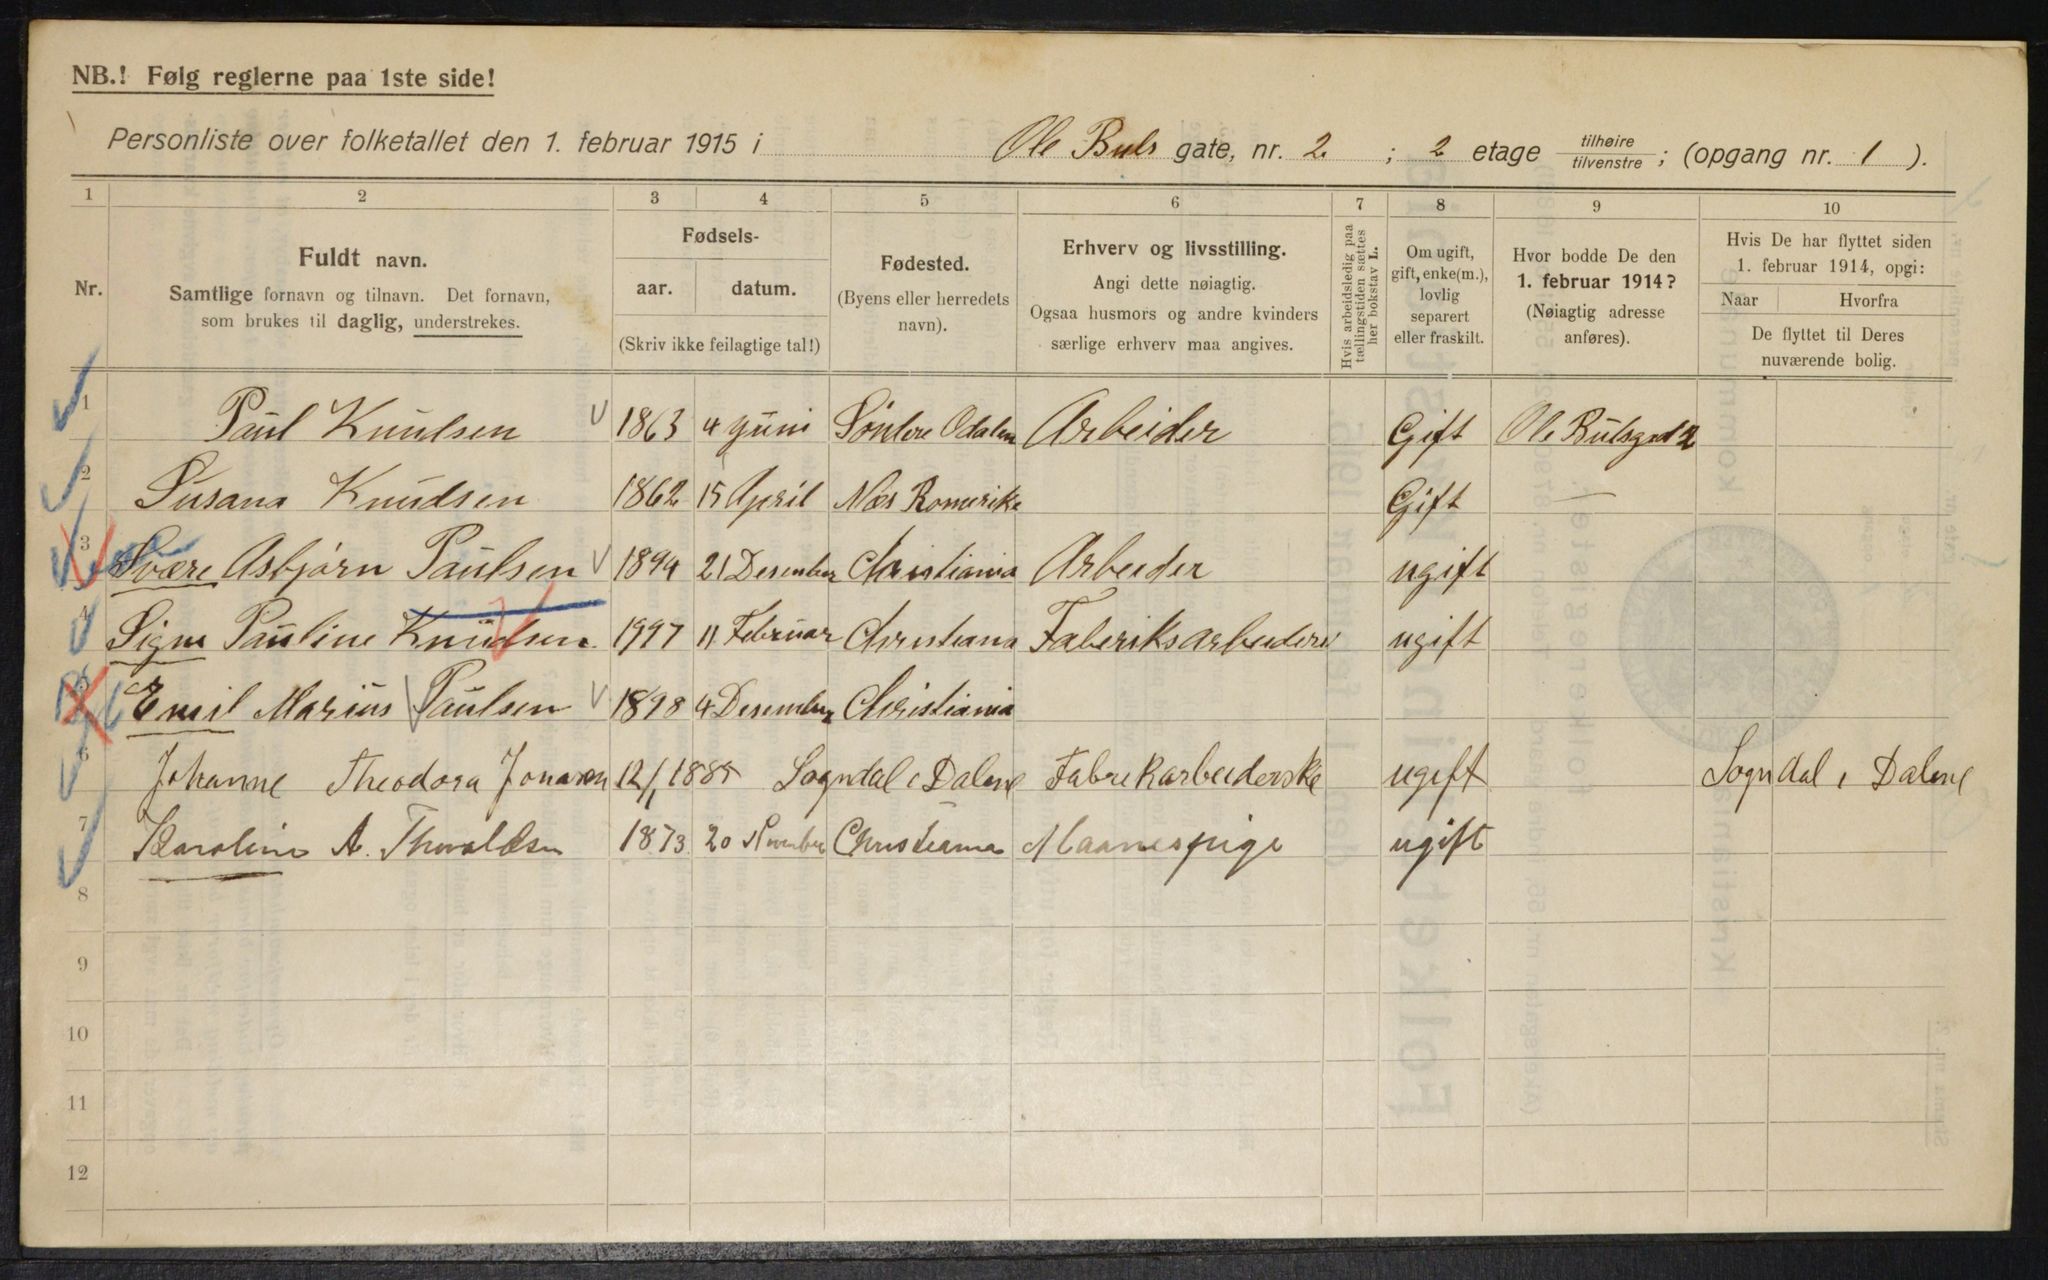 NB.! Følg reglerne paa 1ste side!
Personliste over folketallet den 1. februar 1915 i Ole Buls gate, nr. 2 ; 2 etage tilhøire/tilvenstre ; (opgang nr. 1 ).
1 2 3 4 5 6 7 8 9 10
Nr.
Fuldt navn.
Samtlige fornavn og tilnavn. Det fornavn,
som brukes til daglig, understrekes.
Fødsels-
aar. datum.
(Skriv ikke feilagtige tal!)
Fødested.
(Byens eller herredets
navn).
Erhverv og livsstilling.
Angi dette nøiagtig.
Ogsaa husmors og andre kvinders
særlige erhverv maa angives.
Hvis arbeidsledig paa
tællingstiden sættes
her bokstav L.
Om ugift,
gift, enke(m.),
lovlig
separert
eller fraskilt.
Hvor bodde De den
1. februar 1914?
(Nøiagtig adresse
anføres).
Hvis De har flyttet siden
1. februar 1914, opgi:
Naar Hvorfra
De flyttet til Deres
nuværende bolig.
1 Paul Knudsen 1863 4 juni Söndre Odalen Arbeider Gift Ole Bulsgad 2
2 Susana Knudsen 1862 15 April Næs Romerike Gift —
3 Svære Asbjørn Paulsen 1894 21 Desember Christiania Arbeider ugift
4 Signe Pauline Knudsen 1997 11 Februar Christiana ugift
5 Emil Marius Paulsen 1898 4 Desember Christiania
6 Johanne Theodora Jonasen 12/1 1885 Sogndal i Dalene Fabrekarbeiderske ugift Sogndal i Dalene
7 Karoline A. Thoraldsen 1873 20 November Christiania Maanespige ugift
8
9
10
11
12